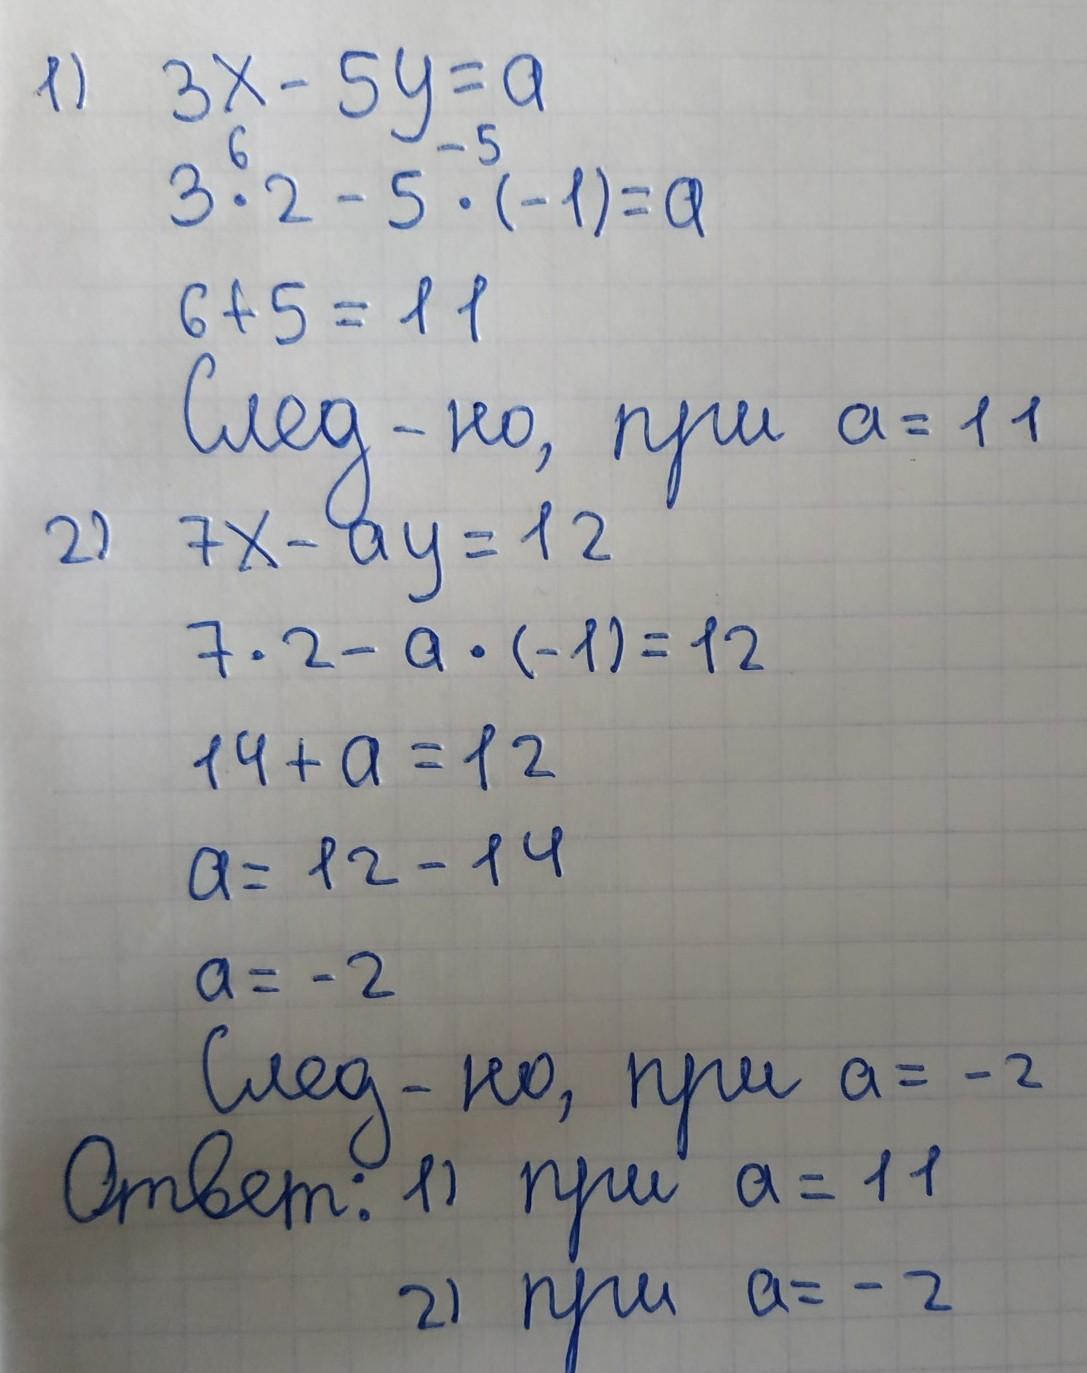 1) 3x - 5y = a
6 -5
3 · 2 - 5 · (-1) = a
6 + 5 = 11
След-но, при a = 11
2) 7x - ay = 12
7 · 2 - a · (-1) = 12
14 + a = 12
a = 12 - 14
a = -2
След-но, при a = -2
Ответ: 1) при a = 11
2) при a = -2